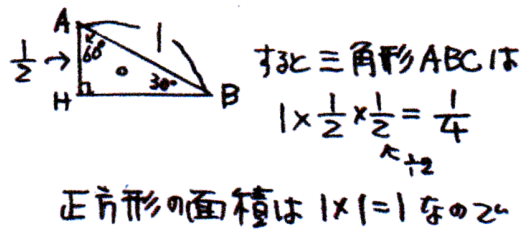 A
1
1/2 →
60°
30°
H
B
すると三角形ABCは
1×1/2×1/2=1/4
÷2
正方形の面積は1×1=1なので